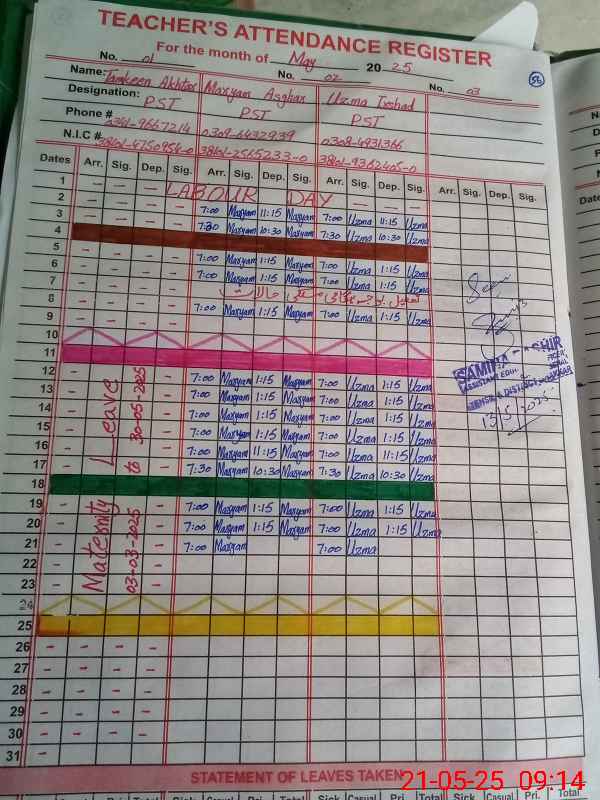 TEACHER'S ATTENDANCE REGISTER
For the month of May 2025
No. 01 No. 02 No. 03
56
Name: Tamkeen Akhtar Maryam Asghar Uzma Irshad
Designation: PST PST PST
Phone # 0309-6432939 0308-4931366
N.I.C # 38101-4750954-0 38101-2565233-0 38101-9362405-0
Dates Arr. Sig. Dep. Sig. Arr. Sig. Dep. Sig. Arr. Sig. Dep. Sig. Arr. Sig. Dep. Sig.
1 LABOUR DAY
2 7:00 Maryam 11:15 Maryam 7:00 Uzma 11:15 Uzma
3 7:30 Maryam 10:30 Maryam 7:30 Uzma 10:30 Uzma
4
5 7:00 Maryam 1:15 Maryam 7:00 Uzma 1:15 Uzma
6 7:00 Maryam 1:15 Maryam 7:00 Uzma 1:15 Uzma
7
8 7:00 Maryam 1:15 Maryam 7:00 Uzma 1:15 Uzma
9
10
11
12 7:00 Maryam 1:15 Maryam 7:00 Uzma 1:15 Uzma
13 7:00 Maryam 1:15 Maryam 7:00 Uzma 1:15 Uzma
14 7:00 Maryam 1:15 Maryam 7:00 Uzma 1:15 Uzma
15 7:00 Maryam 1:15 Maryam 7:00 Uzma 1:15 Uzma
16 7:00 Maryam 11:15 Maryam 7:00 Uzma 11:15 Uzma
17 7:30 Maryam 10:30 Maryam 7:30 Uzma 10:30 Uzma
18
19 7:00 Maryam 1:15 Maryam 7:00 Uzma 1:15 Uzma
20 7:00 Maryam 1:15 Maryam 7:00 Uzma 1:15 Uzma
21 7:00 Maryam 7:00 Uzma
22
23
24
25
26
27
28
29
30
31
Maternity Leave
03-03-2025 to 30-05-2025
ASSISTANT
13/5/2025
STATEMENT OF LEAVES TAKEN
Pri. Total Sick Casual Pri. Total Sick Casual Pri. Total
21-05-25 09:14